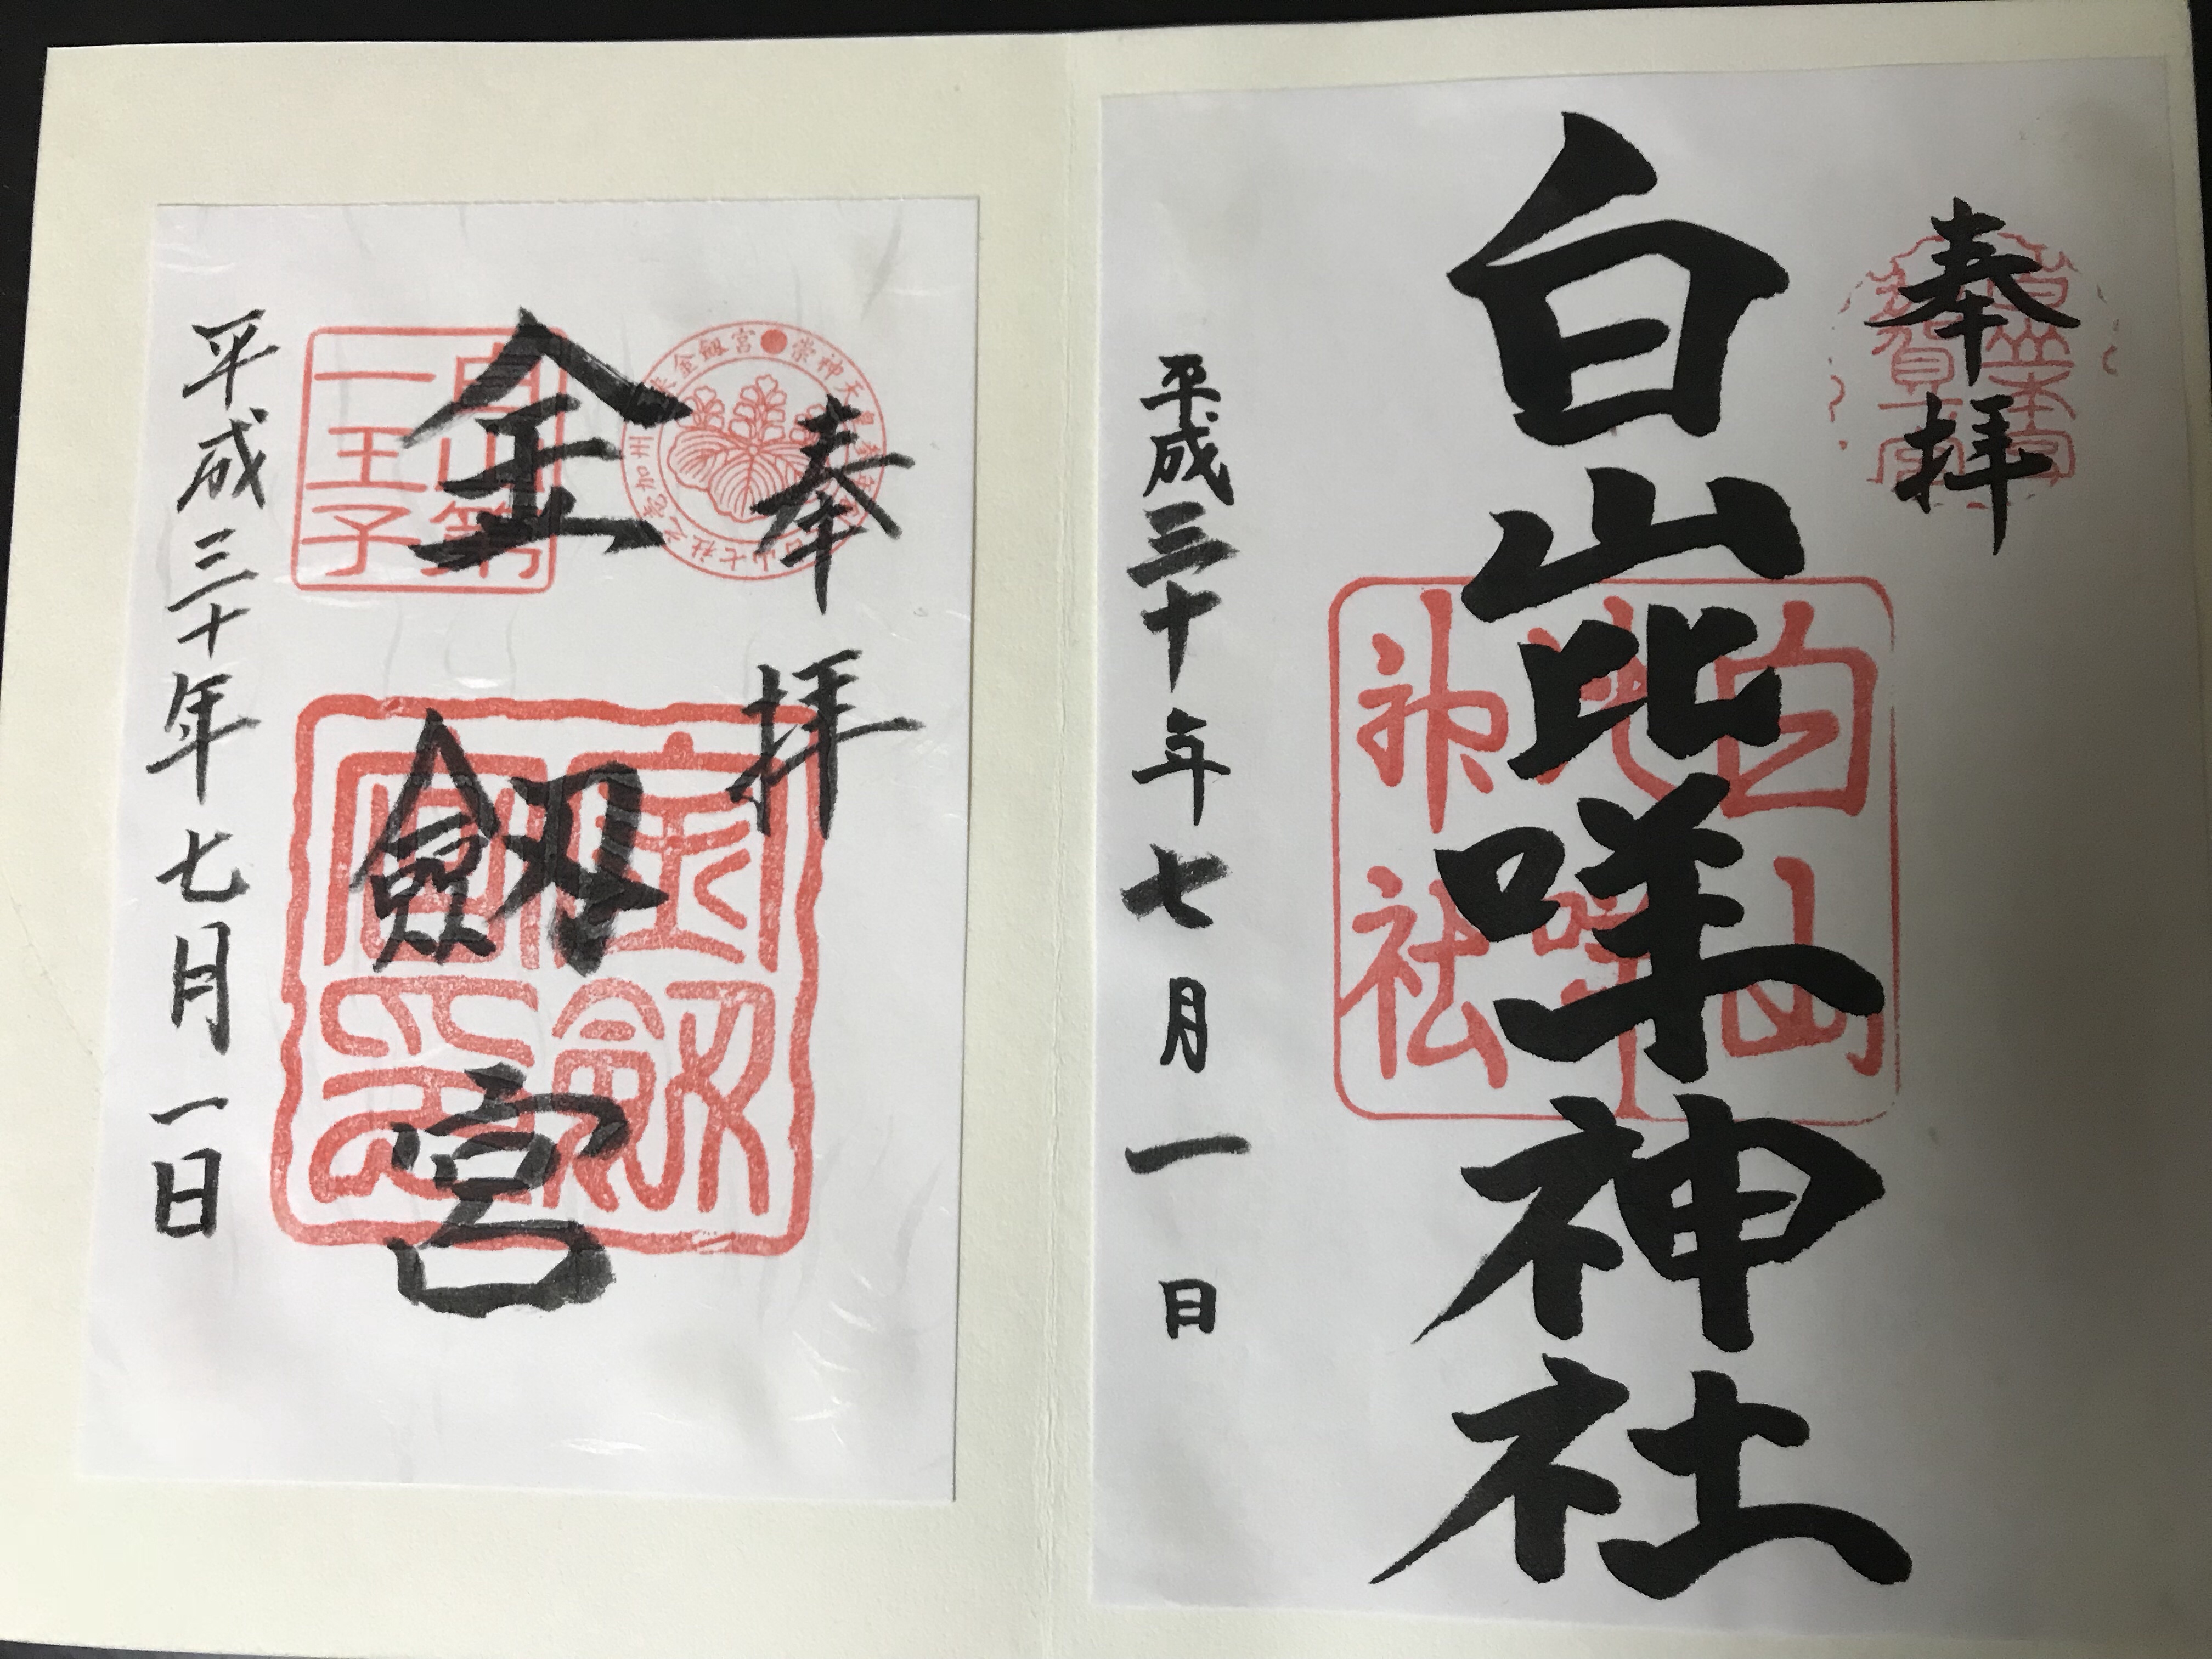 奉拝
白山比咩神社
白山
比咩
神社
平成三十年七月一日
奉拝
金劔宮
白山第
一王子
金劔
宮印
平成三十年七月一日